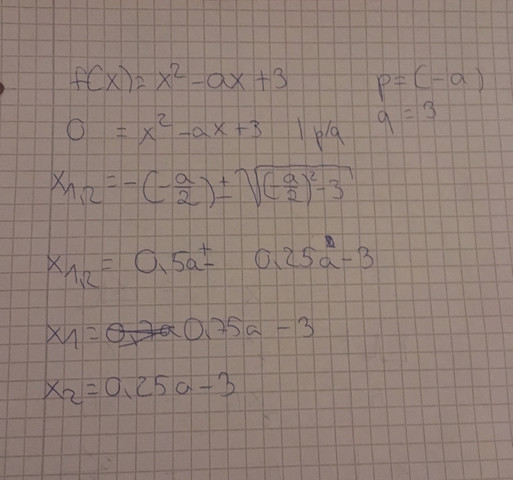 f(x) = x² - ax + 3    p = (-a)
q = 3
0 = x² - ax + 3 | p/q
x₁,₂ = -(-a/2) ± √((-a/2)² - 3)
x₁,₂ = 0,5a ± 0,25a² - 3
x1 = 0,75a - 3
x2 = 0,25a - 3